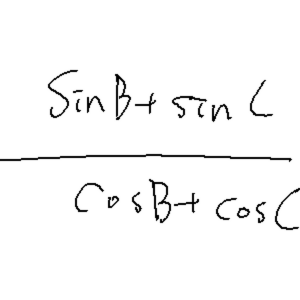 SinB+ sin C
CosB+ cosC